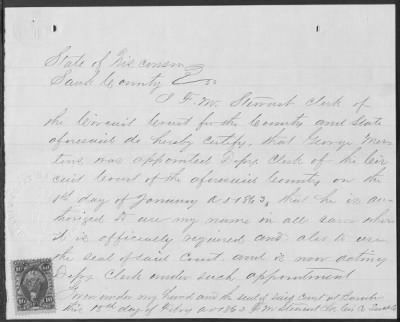 State of Wisconsin
Sauk County } ss
I F. M. Stewart Clerk of
the Circuit Court for the County and State
aforesaid do hereby certify, that George Mer-
tens was appointed Depy Clerk of the Cir-
cuit Court of the aforesaid County on the
1st day of January A D 1863, that he is au-
thorized to use my name in all cases where
it is officially required and also to use
the seal of said Court and is now acting
Depy Clerk under such appointment
Given under my hand and the seal of said Court at Baraboo
this 18th day of Feby A D 1863 F M Stewart Clk Cir Ct Sauk Co